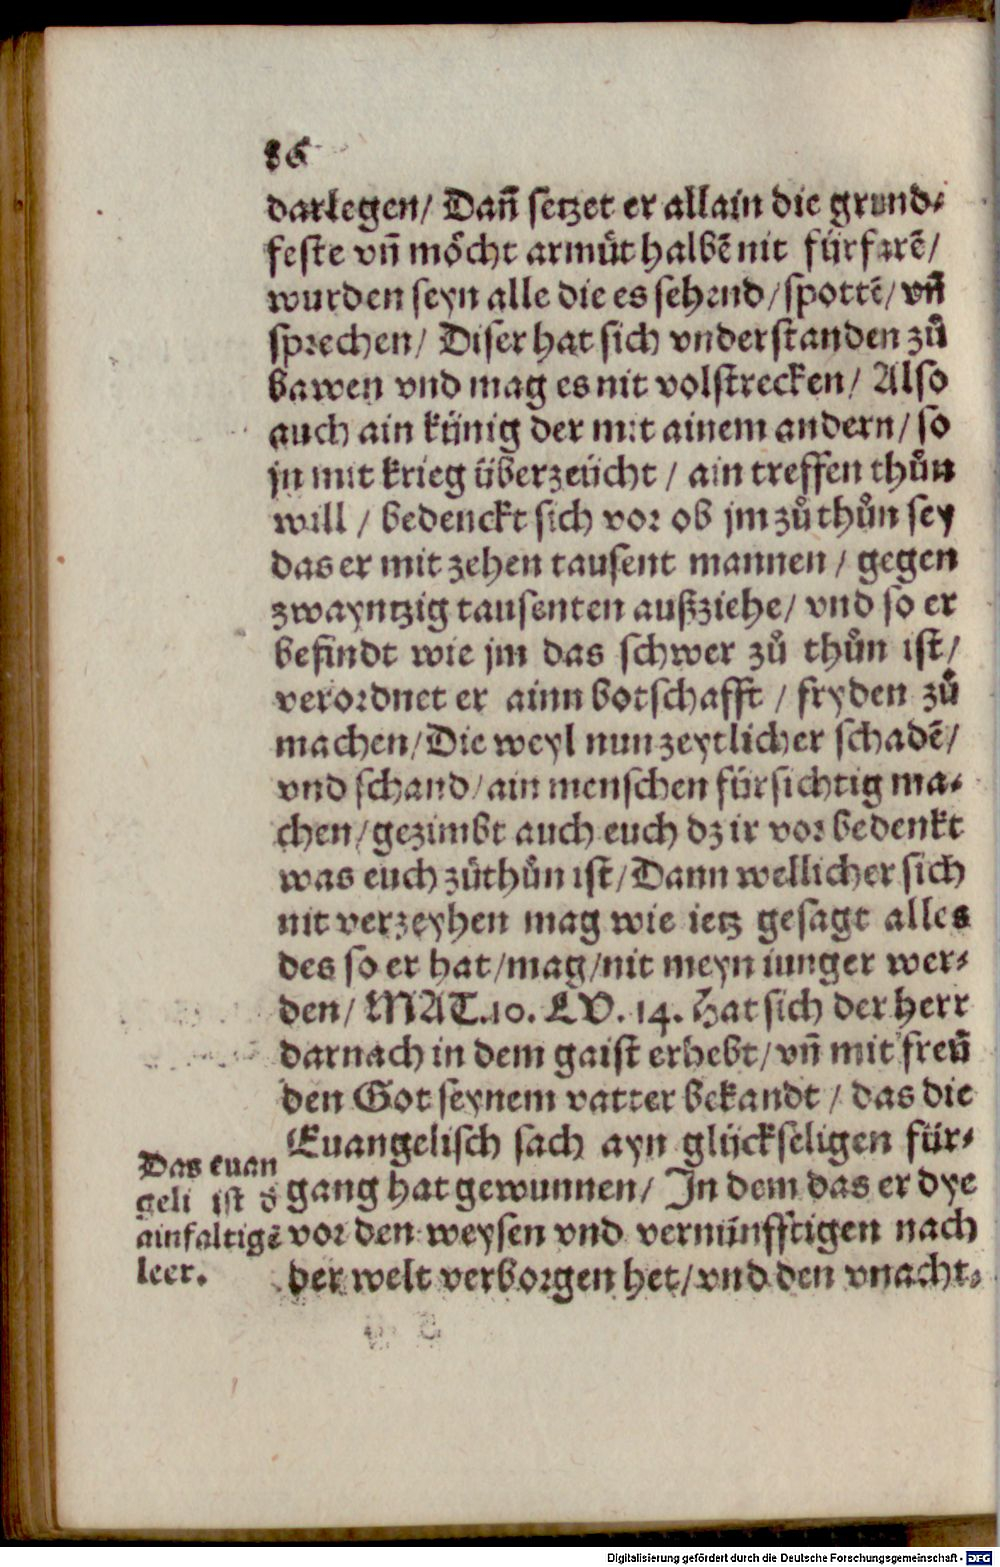 86
darlegen/ Dañ setzet er allain die grund⸗
feste vñ möcht armůt halbẽ nit fürfarẽ/
wurden seyn alle die es sehend/spottẽ/ vñ
sprechen/ Diser hat sich vnderstanden zů
bawen vnd mag es nit volstrecken/ Also
auch ain künig der mit ainem andern/ so
jn mit krieg überzeücht / ain treffen thůn
will / bedenckt sich vor ob jm zů thůn sey
das er mit zehen tausent mannen / gegen
zwayntzig tausenten außziehe/ vnd so er
befindt wie jm das schwer zů thůn ist/
verordnet er ainn botschafft / fryden zů
machen/ Die weyl nun zeytlicher schadẽ/
vnd schand/ ain menschen fürsichtig ma⸗
chen/ gezimbt auch euch dz ir vor bedenkt
was euch zůthůn ist/ Dann wellicher sich
nit verzeyhen mag wie ietz gesagt alles
des so er hat/mag/nit meyn iunger wer⸗
den/ MAT.10. LV. 14. Hat sich der herr
darnach in dem gaist erhebt/ vñ mit freü
den Got seynem vatter bekandt / das die
Euangelisch sach ayn glückseligen für⸗
gang hat gewunnen/ In dem das er dye
vor den weysen vnd vernünfftigen nach
der welt verborgen het/ vnd den vnacht⸗
Das euan
geli ist d̕
ainfaltigẽ
leer.
Digitalisierung gefördert durch die Deutsche Forschungsgemeinschaft - DFG